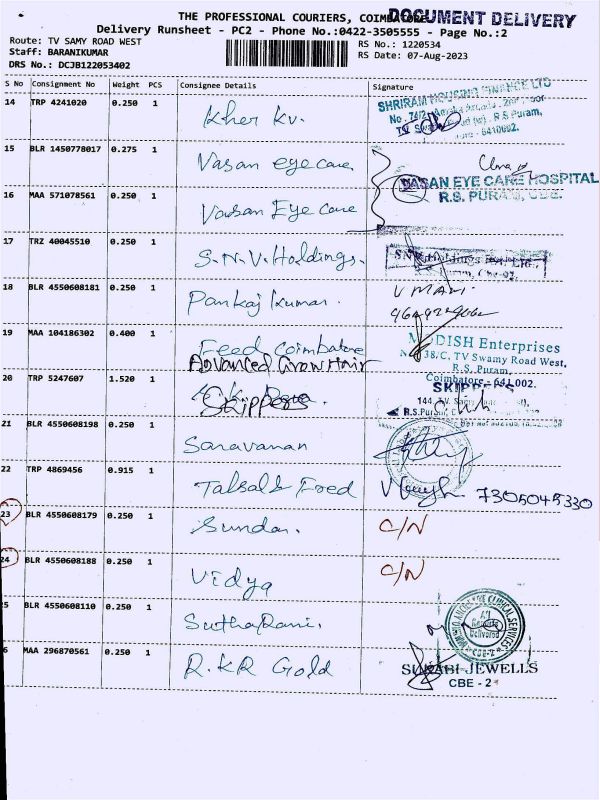 THE PROFESSIONAL COURIERS, COIMBATORE
DOCUMENT DELIVERY
Delivery Runsheet - PC2 - Phone No.:0422-3505555 - Page No.:2
Route: TV SAMY ROAD WEST
RS No.: 1220534
Staff: BARANIKUMAR
RS Date: 07-Aug-2023
DRS No.: DCJB122053402
S No Consignment No Weight PCS Consignee Details Signature
14 TRP 4241020 0.250 1 Kher kv.
SHRIRAM HOUSING FINANCE LTD
R.S. Puram,
15 BLR 1450778017 0.275 1 Vasan eye care
VASAN EYE CARE HOSPITAL
R.S. PURAM, CBE.
16 MAA 571078561 0.250 1 Vasan Eye care
17 TRZ 40045510 0.250 1 S.N.V. Holdings.
18 BLR 4550608181 0.250 1 Pankaj kumar. UMA
19 MAA 104186302 0.400 1 Feed Coimbatore
Advanced GrowHair
MODISH Enterprises
38/C, TV Swamy Road West,
R.S. Puram,
Coimbatore - 641 002.
20 TRP 5247607 1.520 1 Skippers
SKIPPERS
R.S.Puram,
21 BLR 4550608198 0.250 1 Saravanan
22 TRP 4869456 0.915 1 Food 7305045330
23 BLR 4550608179 0.250 1 Sundar. C/N
24 BLR 4550608188 0.250 1 Vidya C/N
25 BLR 4550608110 0.250 1 Sutha Rani.
6 MAA 296870561 0.250 1 R.KR Gold
SURABI JEWELLS
CBE - 2